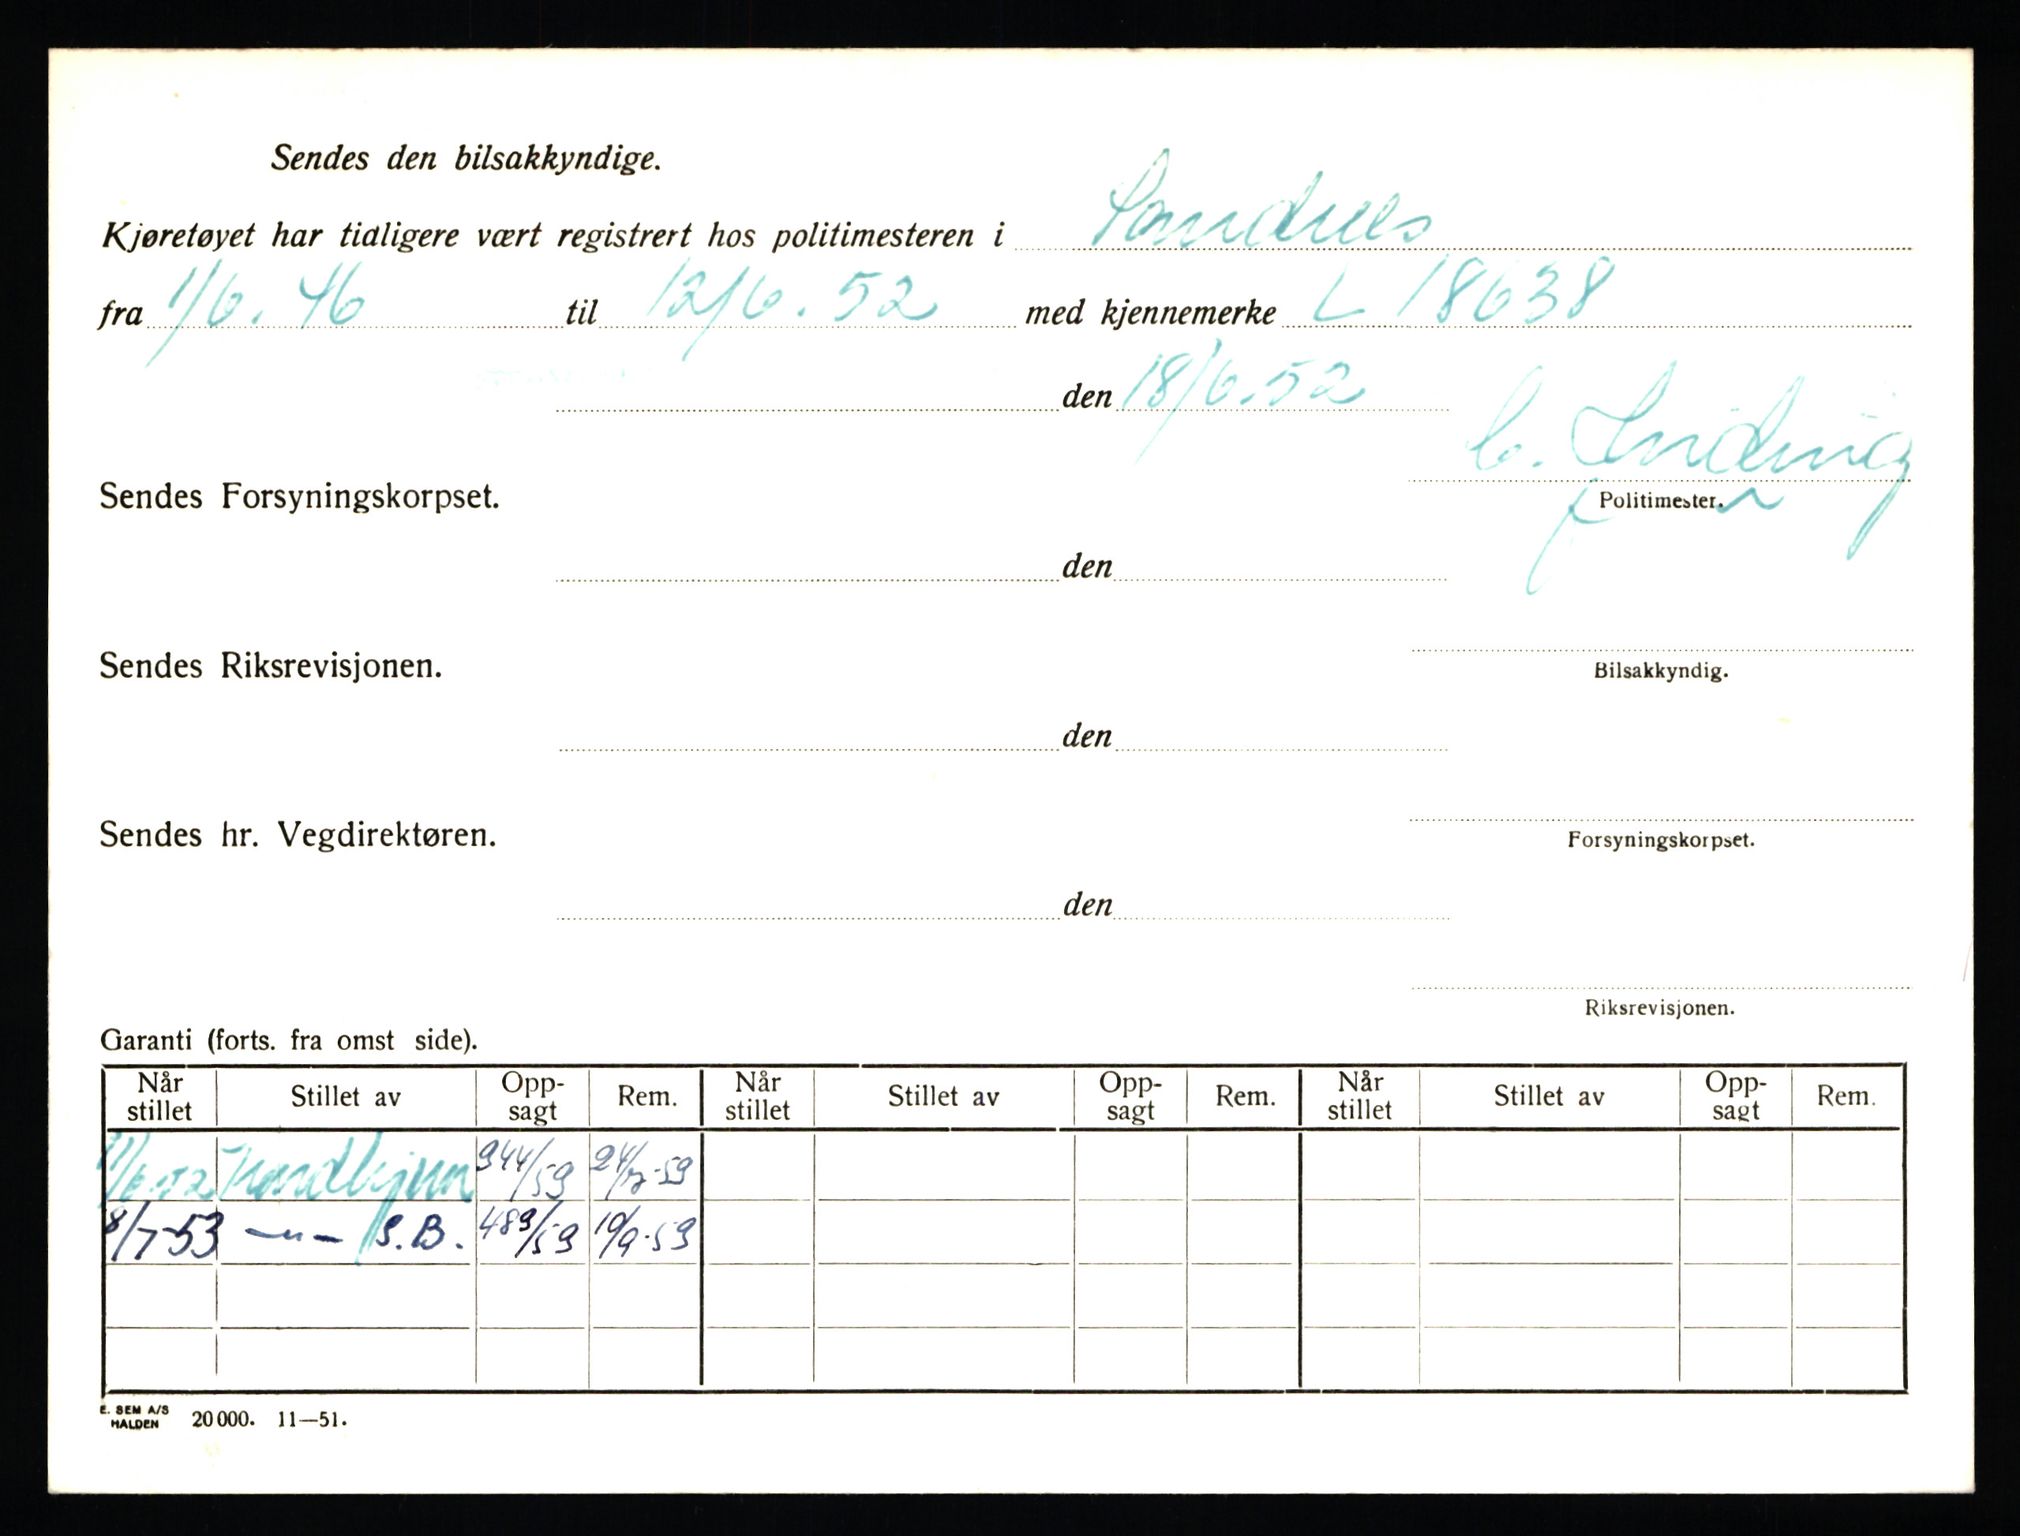 Sendes den bilsakkyndige.
Kjøretøyet har tidligere vært registrert hos politimesteren i Sandnes
fra 1/6. 46 til 12/6. 52 med kjennemerke L 18638
den 18/6.52
Sendes Forsyningskorpset.
Politimester.
den
Sendes Riksrevisjonen.
Bilsakkyndig.
den
Sendes hr. Vegdirektøren.
Forsyningskorpset.
den
Riksrevisjonen.
Garanti (forts. fra omst side).
Når stillet Stillet av Opp-sagt Rem. Når stillet Stillet av Opp-sagt Rem. Når stillet Stillet av Opp-sagt Rem.
11/6.52 944/59
8/7-53 -"- S.B. 489/59 10/9-59
E. SEM A/S
HALDEN 20000. 11—51.